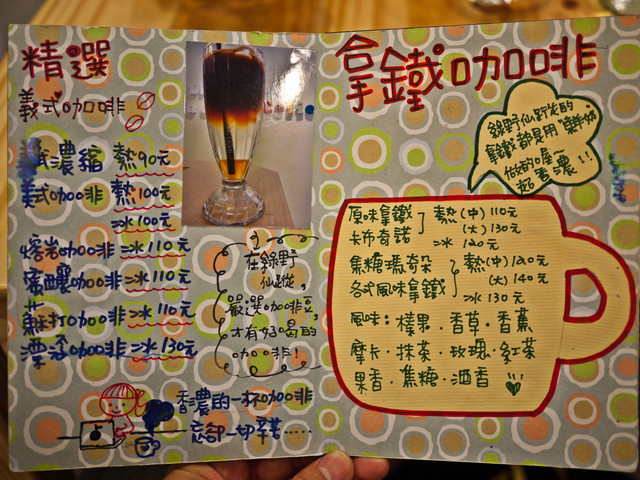 精選
義式咖啡
濃縮 熱90元
美式咖啡 熱100元
冰100元
熔岩咖啡 冰110元
蜜釀咖啡 冰110元
蘇打咖啡 冰110元
漂浮咖啡 冰130元
在綠野
仙蹤,
嚴選咖啡豆,
才有好喝的
咖啡!
香濃的一杯咖啡
忘卻一切辛苦……
拿鐵咖啡
綠野仙蹤的
拿鐵都是用"鮮奶"
做的喔~
超香濃!!!
原味拿鐵
卡布奇諾
熱(中)110元
(大)130元
冰 120元
焦糖瑪奇朵
各式風味拿鐵
熱(中)120元
(大)140元
冰130元
風味:榛果·香草·香蕉
摩卡·抹茶·玫瑰·紅茶
果香·焦糖·酒香!!!